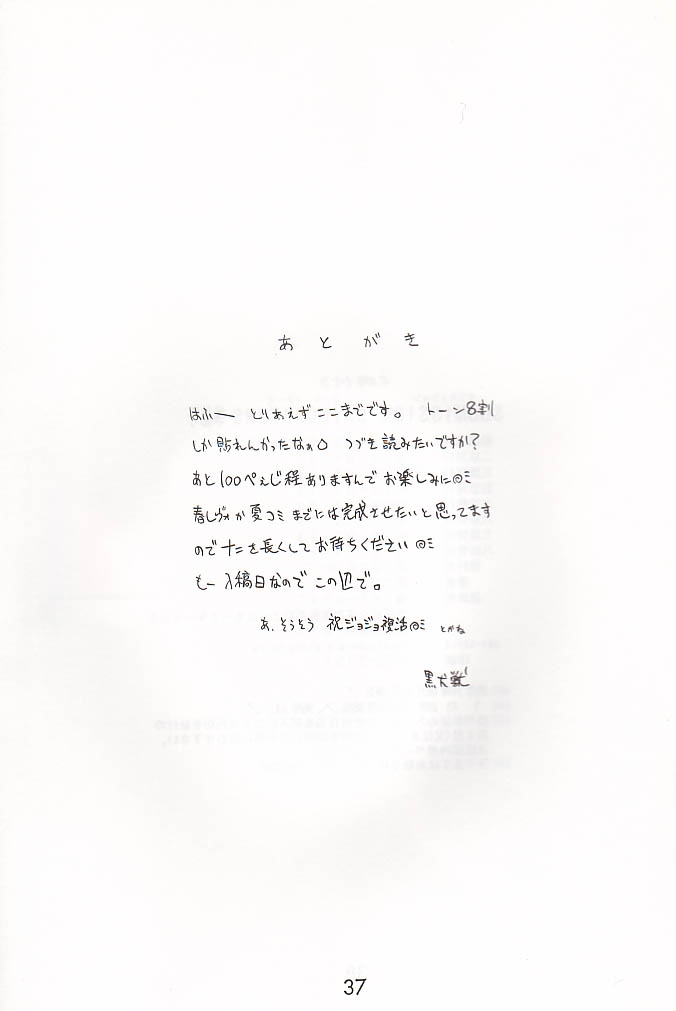 あとがき
はふー とりあえずここまでです。 トーン8割
しか貼れんかったなぁ つづき読みたいですか?
あと100ぺぇじ程ありますんでお楽しみに◎ミ
春レヴォか夏コミまでには完成させたいと思ってます
ので十二を長くしてお待ちください◎ミ
もー入稿日なのでこの辺で。
あ、そうそう 祝ジョジョ復活◎ミ とかね
黒犬獣
37